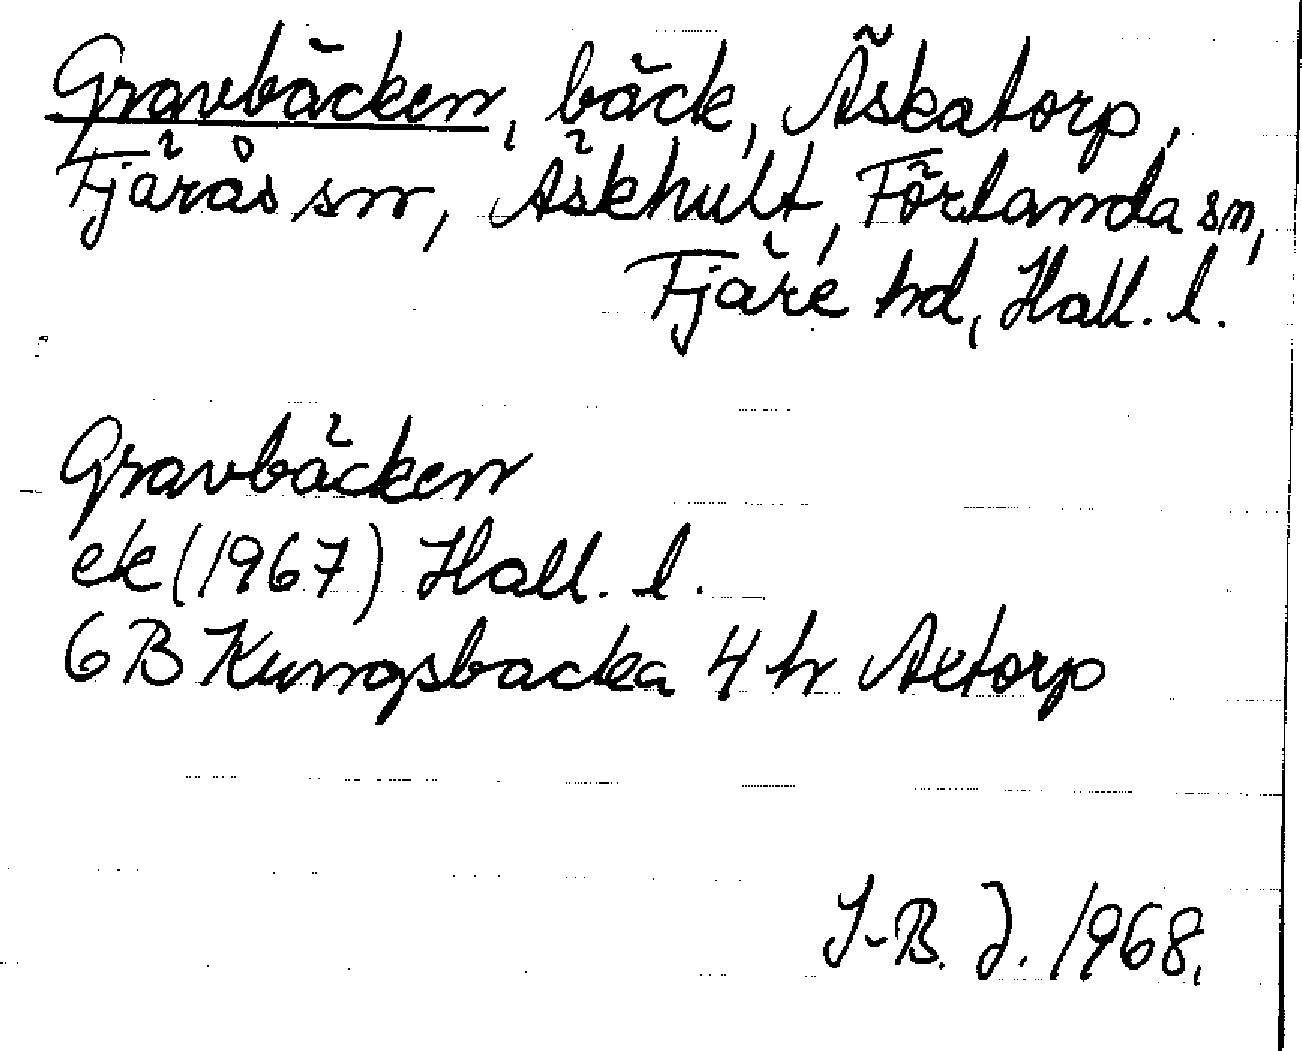 Gravbäcken, bäck, Äskatorp,
Fjärås sn, Äskhult, Förlanda sn,
Fjäre hd, Hall. l.
Gravbäcken
ek (1967) Hall. l.
6 B Kungsbacka 4 h Axtorp
I-B. J. 1968.